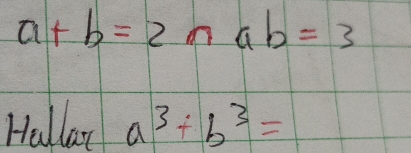 a + b = 2 ∩ ab = 3
Hallar a³ + b³ =